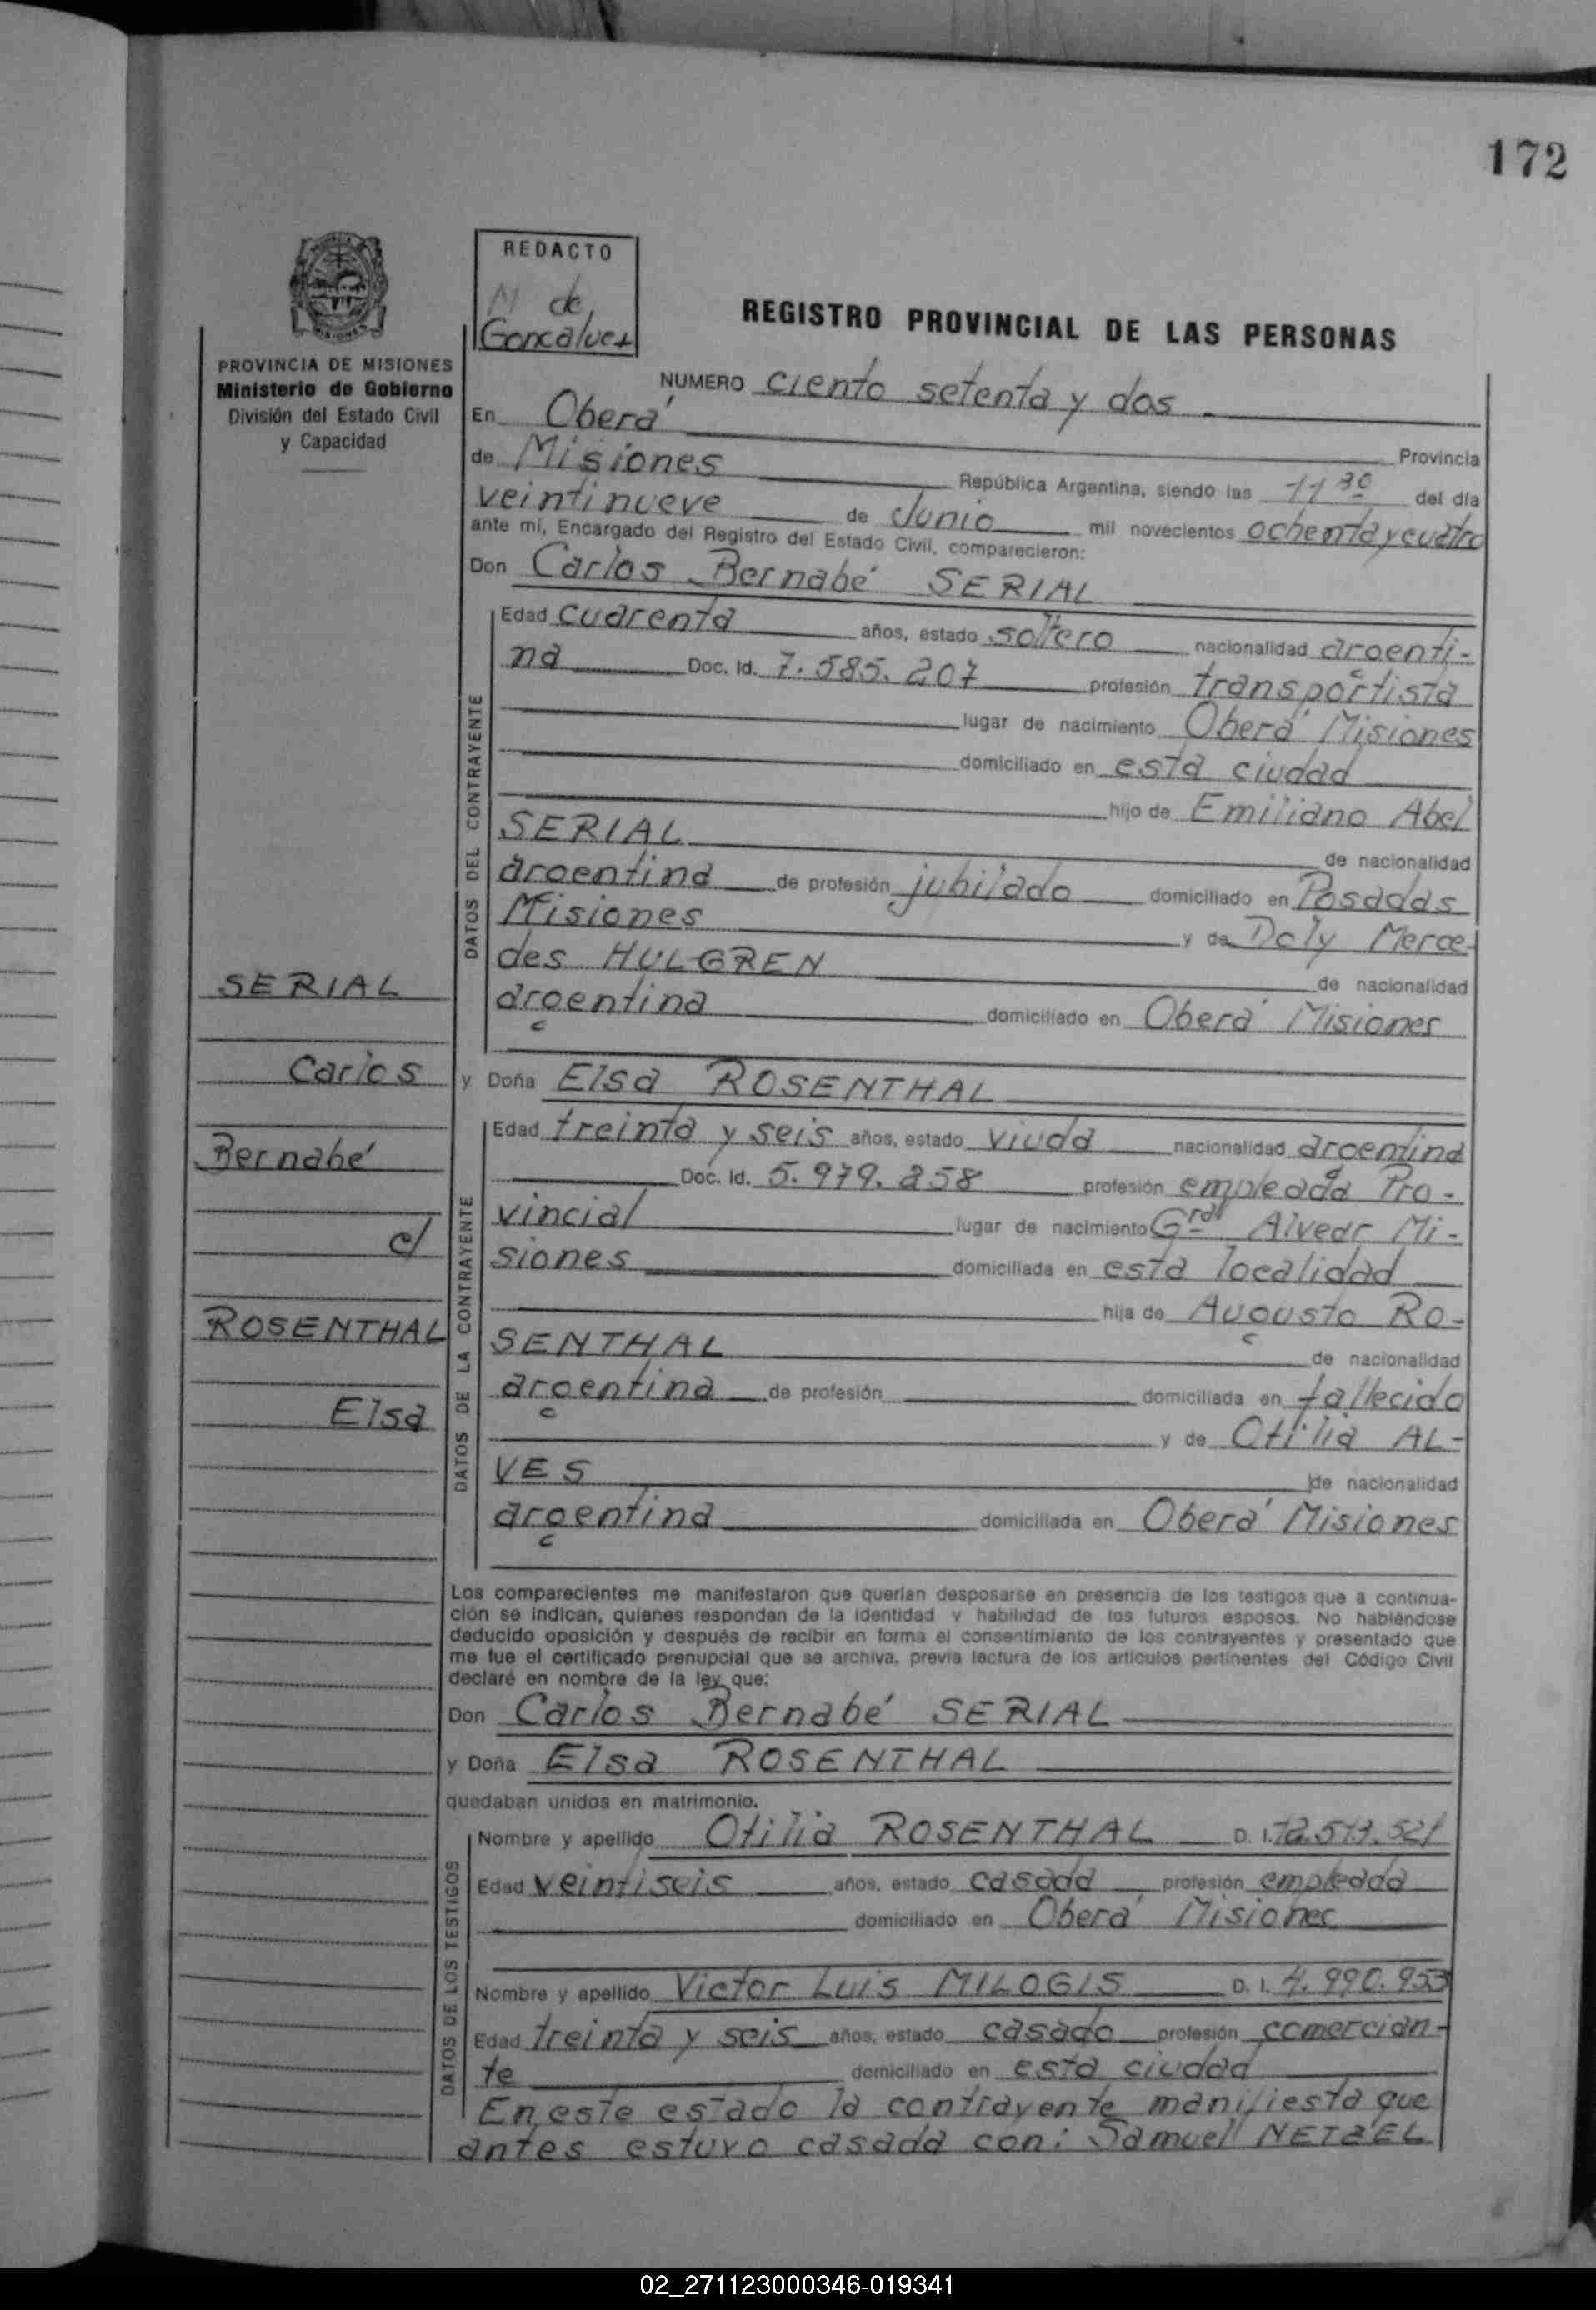 172
REDACTO
M de
Goncalves
REGISTRO PROVINCIAL DE LAS PERSONAS
PROVINCIA DE MISIONES
Ministerio de Gobierno
División del Estado Civil
y Capacidad
NUMERO ciento setenta y dos
En Oberá Provincia
de Misiones República Argentina, siendo las 11 30 del día
veintinueve de Junio mil novecientos ochenta y cuatro
ante mí, Encargado del Registro del Estado Civil, comparecieron:
Don Carlos Bernabé SERIAL
DATOS DEL CONTRAYENTE
Edad cuarenta años, estado soltero nacionalidad argenti-
na Doc. Id. 7.585.207 profesión transportista
lugar de nacimiento Oberá Misiones
domiciliado en esta ciudad
hijo de Emiliano Abel
SERIAL de nacionalidad
argentina de profesión jubilado domiciliado en Posadas
Misiones y de Doly Merce-
des HULGREN de nacionalidad
argentina domiciliado en Oberá Misiones
SERIAL
Carlos
Bernabé
c/
ROSENTHAL
Elsa
y Doña Elsa ROSENTHAL
DATOS DE LA CONTRAYENTE
Edad treinta y seis años, estado viuda nacionalidad argentina
Doc. Id. 5.979.258 profesión empleada Pro-
vincial lugar de nacimiento Gral Alvear Mi-
siones domiciliada en esta localidad
hija de Augusto RO-
SENTHAL de nacionalidad
argentina de profesión domiciliada en fallecido
y de Otilia AL-
VES de nacionalidad
argentina domiciliada en Oberá Misiones
Los comparecientes me manifestaron que querían desposarse en presencia de los testigos que a continua-
ción se indican, quienes responden de la identidad y habilidad de los futuros esposos. No habiéndose
deducido oposición y después de recibir en forma el consentimiento de los contrayentes y presentado que
me fue el certificado prenupcial que se archiva, previa lectura de los artículos pertinentes del Código Civil
declaré en nombre de la ley que:
Don Carlos Bernabé SERIAL
y Doña Elsa ROSENTHAL
quedaban unidos en matrimonio.
DATOS DE LOS TESTIGOS
Nombre y apellido Otilia ROSENTHAL D. I. 12.513.521
Edad veintiseis años, estado casada profesión empleada
domiciliado en Oberá Misiones
Nombre y apellido Victor Luis MILOGIS D. I. 4.990.953
Edad treinta y seis años, estado casado profesión comercian-
te domiciliado en esta ciudad
En este estado la contrayente manifiesta que
antes estuvo casada con: Samuel NETZEL
02_271123000346-019341